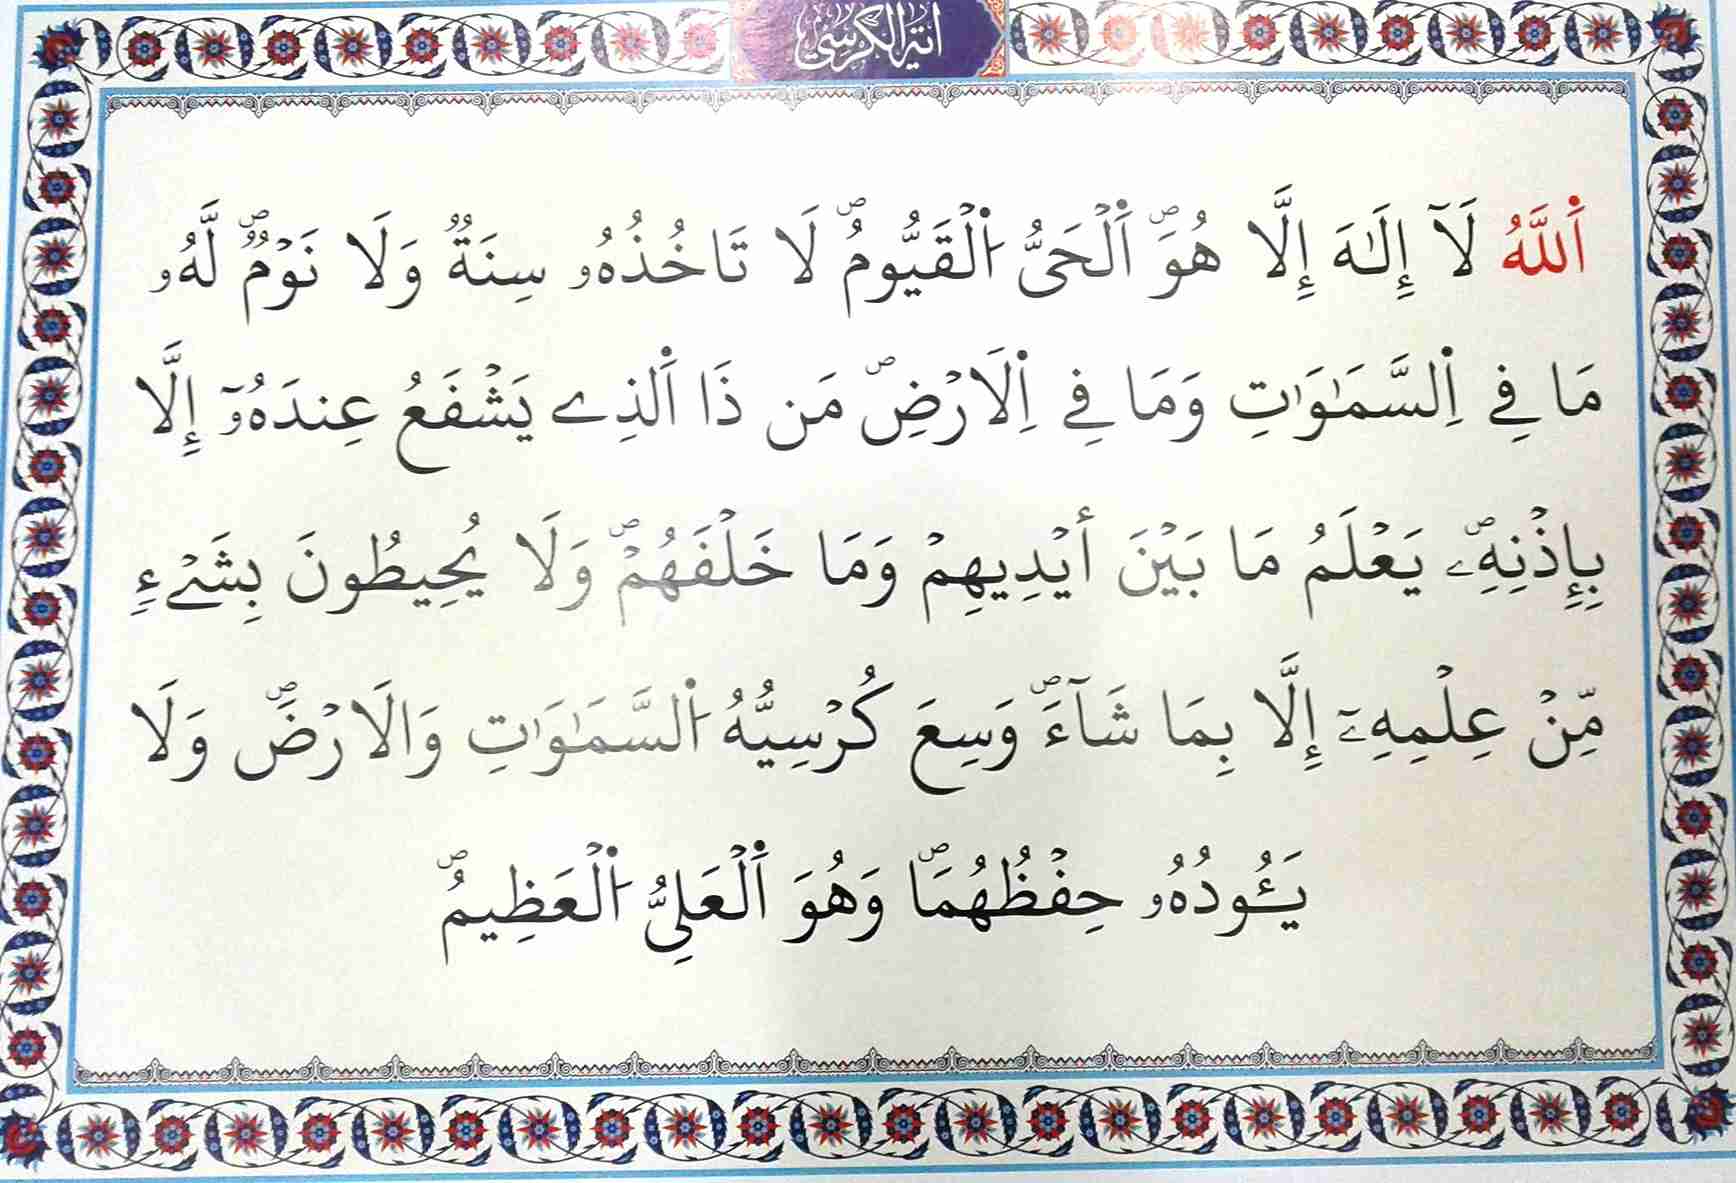 آية الكرسي
اَ۬للَّهُ لَآ إِلَٰهَ إِلَّا هُوَۖ اَ۬لْحَيُّ اُ۬لْقَيُّومُۖ لَا تَاخُذُهُۥ سِنَةٞ وَلَا نَوْمٞۖ لَّهُۥ
مَا فِے اِ۬لسَّمَٰوَٰتِ وَمَا فِے اِ۬لَارْضِۖ مَن ذَا اَ۬لذِے يَشْفَعُ عِندَهُۥٓ إِلَّا
بِإِذْنِهِۦۖ يَعْلَمُ مَا بَيْنَ أَيْدِيهِمْ وَمَا خَلْفَهُمْۖ وَلَا يُحِيطُونَ بِشَےْءٖ
مِّنْ عِلْمِهِۦٓ إِلَّا بِمَا شَآءَۖ وَسِعَ كُرْسِيُّهُ اُ۬لسَّمَٰوَٰتِ وَالَارْضَۖ وَلَا
يَـُٔودُهُۥ حِفْظُهُمَاۖ وَهُوَ اَ۬لْعَلِيُّ اُ۬لْعَظِيمُۖ